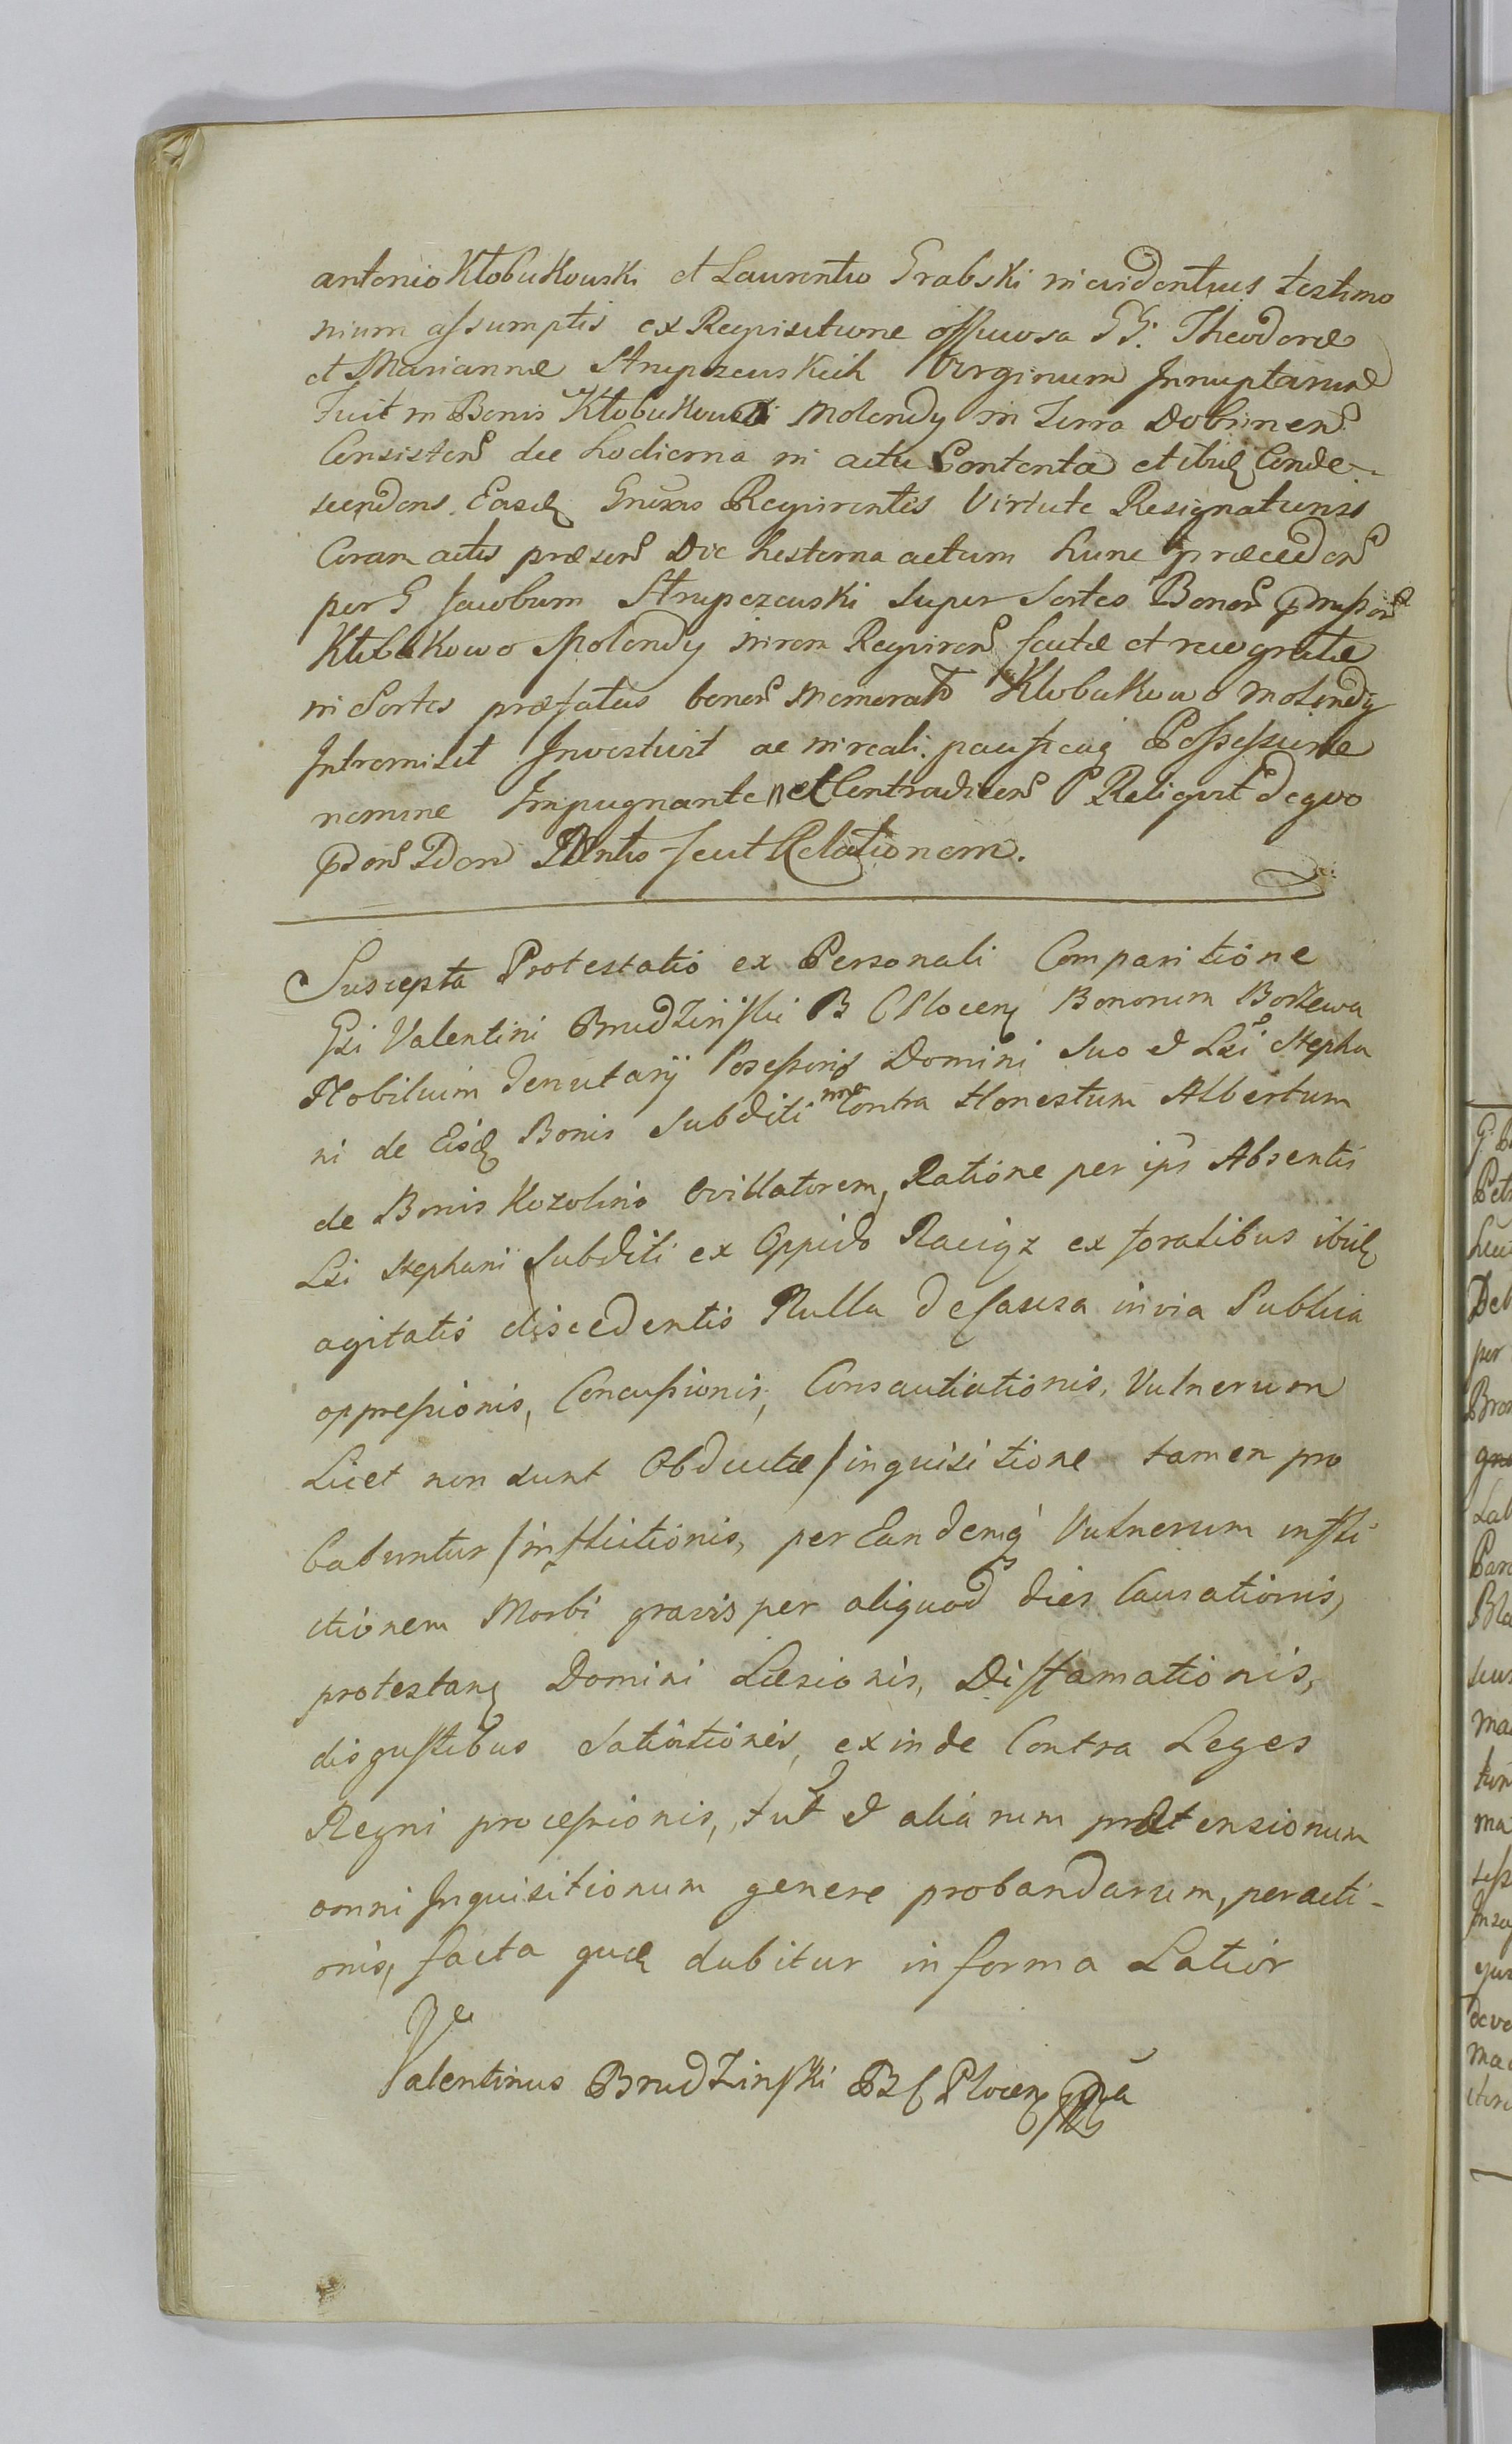 antonio Kłobukowski et Laurentio Grabski in evidentius testimo
nium assumptis ex Requisitione officiosa GG. Theodoræ
et Mariannæ Strupczewskich Virginum Innuptarum
Fuit in Bonis Kłobukowo Molendy in Terra Dobrinen
Consisten die hodierna in actu Contenta et ibid Conde-
scendens Easd Requirentis Virtute Resignationis
Coram actis præsen Die hesterna actum hunc præceden
per G Jacobum Strupczewski super Sortes Bonor
Kłobukowo Molendy in rem Requiren factæ et recognitæ
in Sortes præfatas bonor memorato Klobukowo Molendy
Intromisit Investivit ac in reali pacificaq Possessione
nemine Impugnante nec Contradicen Reliquit de quo
fecit Relationem.
Suscepta Protestatio ex Personali Comparitione
Gsi Valentini Brudzinski B C Plocen Bonorum Borzewa
Nobilium Tenutarij Possessoris Domini suo et Lsi Stepha
ni de Eisd Bonis Subditi nne Contra Honestum Albertum
de Bonis Kozolino Ovillatorem, Ratione per ips Absentis
Lsi Stephani Subditi ex Oppido Raciąz ex foralibus ibid
agitatis discedentis Nulla de causa in via Publica
oppressionis, Concussionis, Consautiationis, Vulnerum
Licet non sunt Obductæ / inquisitione tamen pro
babuntur / inflictionis, per Eandemq Vulnerum infli
ctionem Morbi gravis per aliquod dies Causationis,
protestan Domini Læsionis, Diffamationis,
disgustibus Satiationis, exinde Contra Leges
Regni processionis, tut et aliarum prætensionum
omni Inquisitionum genere probandarum, peracti-
onis, facta quæ dabitur in forma Latior
Valentinus Brudzinski B C Plocen